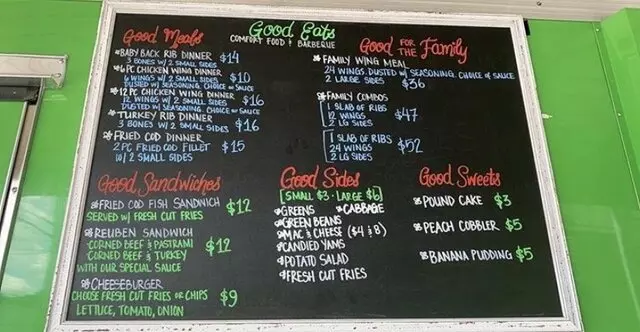 Good Eats
COMFORT FOOD & BARBEQUE
Good Meals
*BABY BACK RIB DINNER $14
3 BONES W/ 2 SMALL SIDES
*6 PC CHICKEN WING DINNER $10
6 WINGS W/ 2 SMALL SIDES
DUSTED W/ SEASONING. CHOICE OF SAUCE
*12 PC CHICKEN WING DINNER $16
12 WINGS W/ 2 SMALL SIDES
DUSTED W/ SEASONING. CHOICE OF SAUCE
*TURKEY RIB DINNER $16
3 BONES W/ 2 SMALL SIDES
*FRIED COD DINNER $15
2 PC FRIED COD FILLET
W/ 2 SMALL SIDES
Good FOR THE Family
*FAMILY WING MEAL
24 WINGS DUSTED W/ SEASONING. CHOICE OF SAUCE
2 LARGE SIDES $36
*FAMILY COMBOS
1 SLAB OF RIBS
12 WINGS $47
2 LG SIDES
1 SLAB OF RIBS
24 WINGS $52
2 LG SIDES
Good Sandwiches
*FRIED COD FISH SANDWICH $12
SERVED W/ FRESH CUT FRIES
*REUBEN SANDWICH
CORNED BEEF & PASTRAMI $12
CORNED BEEF & TURKEY
WITH OUR SPECIAL SAUCE
*CHEESEBURGER
CHOOSE FRESH CUT FRIES OR CHIPS $9
LETTUCE, TOMATO, ONION
Good Sides
SMALL $3 · LARGE $6
*GREENS *CABBAGE
*GREEN BEANS
*MAC & CHEESE ($4 & 8)
*CANDIED YAMS
*POTATO SALAD
*FRESH CUT FRIES
Good Sweets
*POUND CAKE $3
*PEACH COBBLER $5
*BANANA PUDDING $5